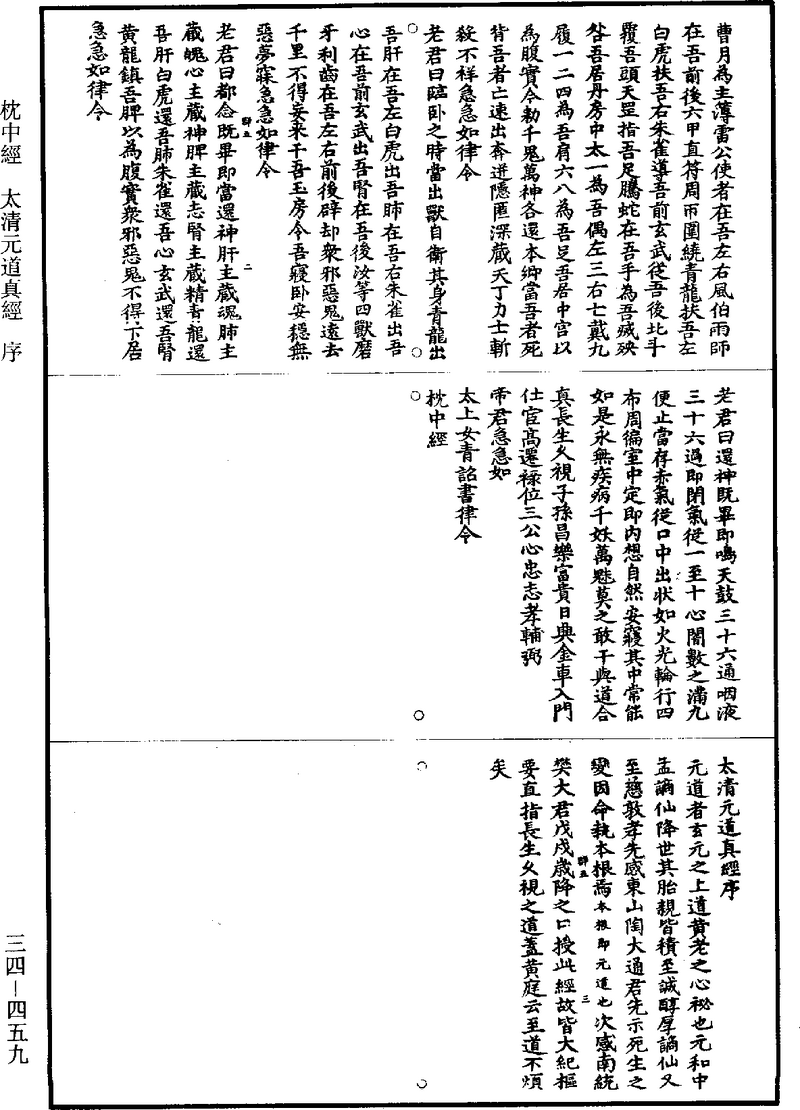 曹月為主薄雷公使者在吾左右風伯雨師
在吾前後六甲直符周帀圍繞青龍扶吾左
白虎扶吾右朱雀導吾前玄武從吾後北斗
覆吾頭天罡指吾足騰蛇在吾手為吾滅殃
咎吾居丹房中太一為吾偶左三右七戴九
履一二四為吾肩六八為吾足吾居中宮以
為腹實今勑千鬼萬神各還本鄉當吾者死
背吾者亡速出奔迸隱匿深藏天丁力士斬
殺不祥急急如律令
老君曰臨卧之時當出獸自衛其身青龍出
吾肝在吾左白虎出吾肺在吾右朱雀出吾
心在吾前玄武出吾腎在吾後汝等四獸磨
牙利齒在吾左右前後辟却衆邪惡鬼遠去
千里不得妄來干吾玉房令吾寢卧安穩無
惡夢寐急急如律令
群五 二
老君曰都念既畢即當還神肝主藏魂肺主
藏魄心主藏神脾主藏志腎主藏精青龍還
吾肝白虎還吾肺朱雀還吾心玄武還吾腎
黃龍鎮吾脾以為腹實衆邪惡鬼不得下居
急急如律令
老君曰還神既畢即鳴天鼓三十六通咽液
三十六過即閉氣從一至十心闇數之滿九
便止當存赤氣從口中出狀如火光輪行四
布周徧室中定即內想自然安寢其中常能
如是永無疾病千妖萬魅莫之敢干與道合
真長生久視子孫昌樂富貴日興金車入門
仕宦高遷祿位三公心忠志孝輔弼
帝君急急如
太上女青詔書律令
枕中經
太清元道真經序
元道者玄元之上道黃老之心祕也元和中
孟謫仙降世其胎親皆積至誠醇厚謫仙又
至慈敦孝先感東山陶大通君先示死生之
變因命執本根焉本根即元道也次感南統
群五 三
樊大君戊戌歲降之口授此經故皆大紀樞
要直指長生久視之道蓋黃庭云至道不煩
矣
枕中經 太清元道真經 序
三四－四五九